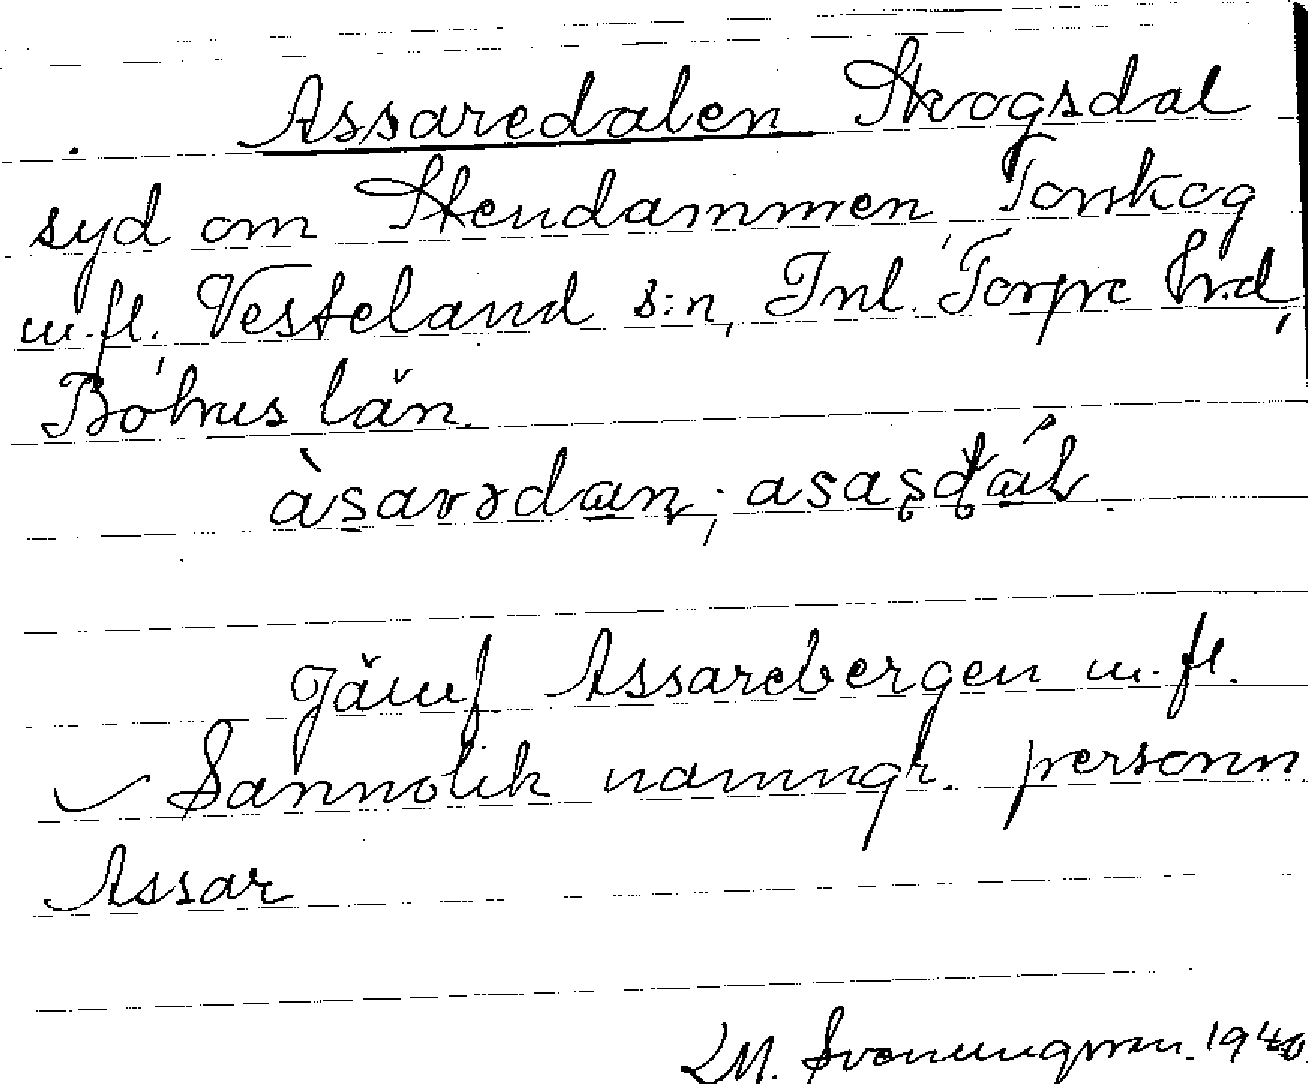 Assaredalen Skogsdal
syd om Stendammen, Torskog
m.fl. Vesteland s:n, Inl. Torpe hrd,
Bohus län.
àsarədan; asasdál
Jämf Assarebergen m.fl.
Sannolik namngr. personn
Assar
LM. Svenungsson. 1940.